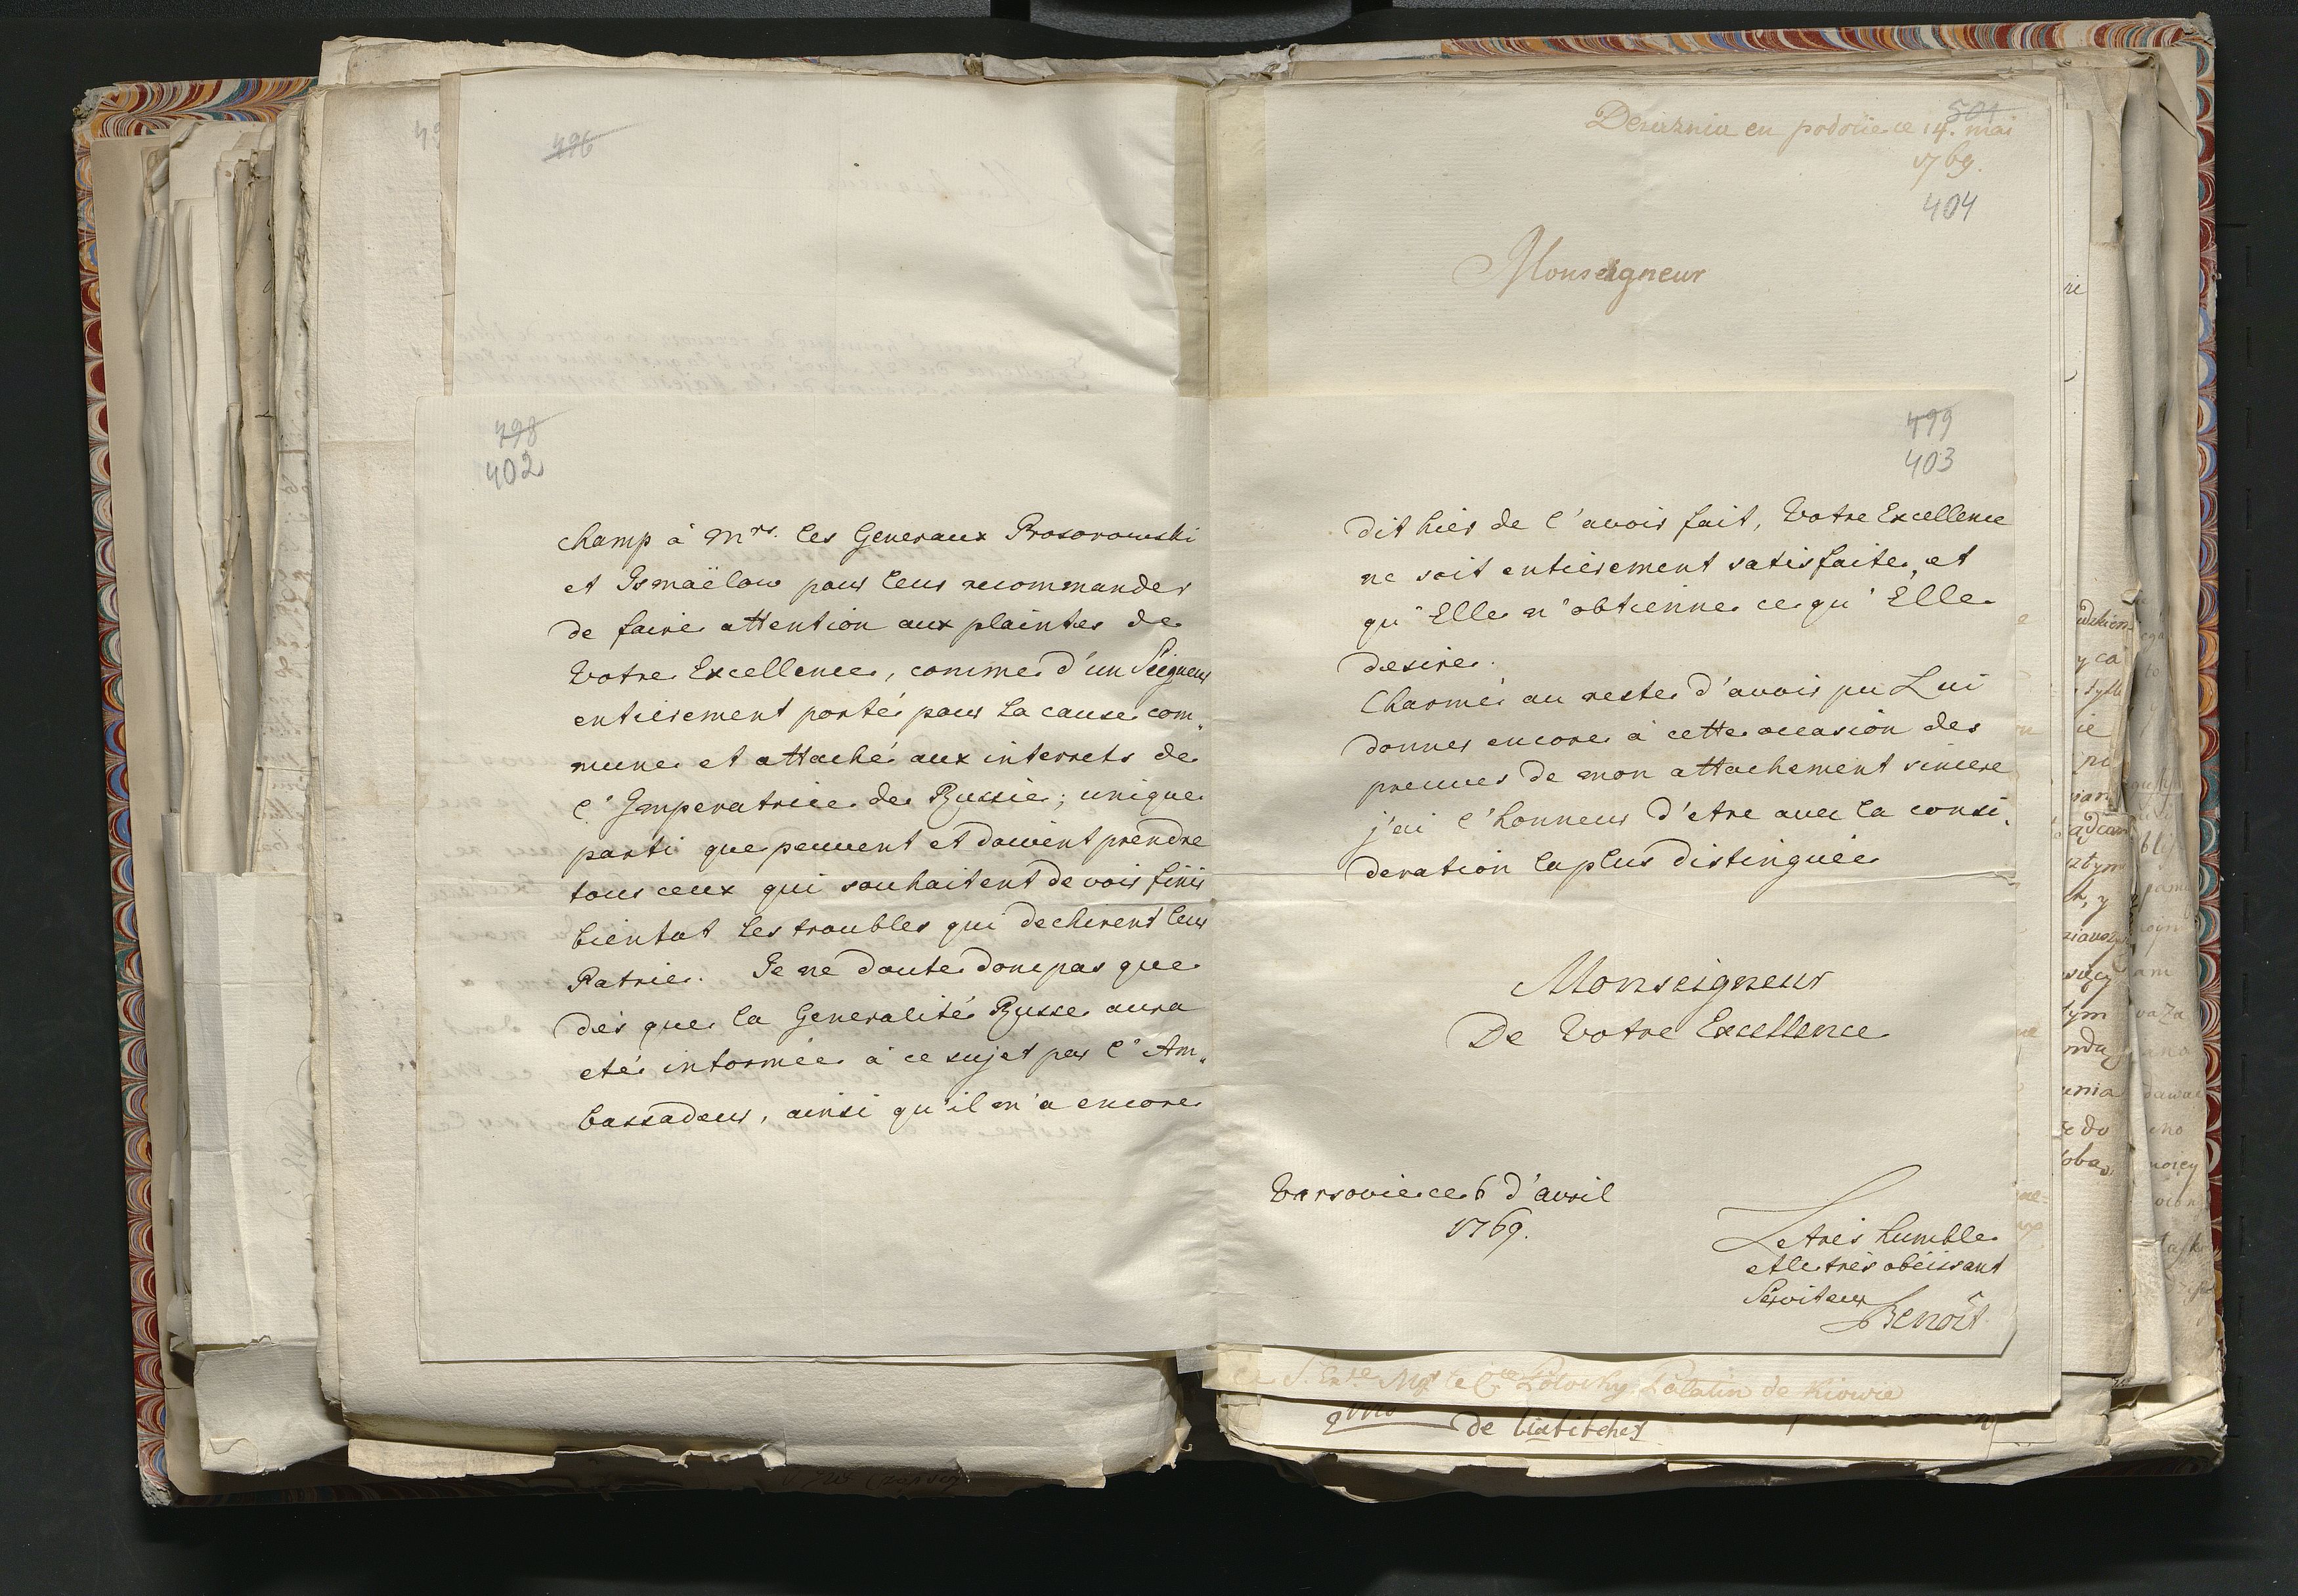 496
498
402
champ à Mrs. les Generaux Prosorowski
et Ismaëlow pour leur recommander
de faire attention aux plaintes de
Votre Excellence, comme d'un Seigneur
entierement porté pour la cause com„
mune et attaché aux interrets de
l'Imperatrice de Russie; unique
parti que peuvent et doivent prendre
tous ceux qui souhaitent de voir finir
bientot les troubles qui dechirent leur
Patrie. Je ne doute donc pas que
dès que la Generalité Russe aura
eté informée à ce sujet par l'Am„
bassadeur, ainsi qu'il m'a encore
501
en podolie ce 14. mai
1769.
404
Monseigneur
499
403
dit hier de l'avoir fait, Votre Excellence
ne soit entierement satisfaite, et
qu'Elle n'obtienne ce qu'Elle
desire.
Charmé au reste d'avoir pu Lui
donner encore à cette occasion des
preuves de mon attachement sincere
j'ai l'honneur d'etre avec la consi„
deration la plus distinguée
Monseigneur
De Votre Excellence
Varsovie ce 6 d'avril
1769.
Le très humble
et le très obéissant
Serviteur
Benoît
Palatin de Kiowie
de